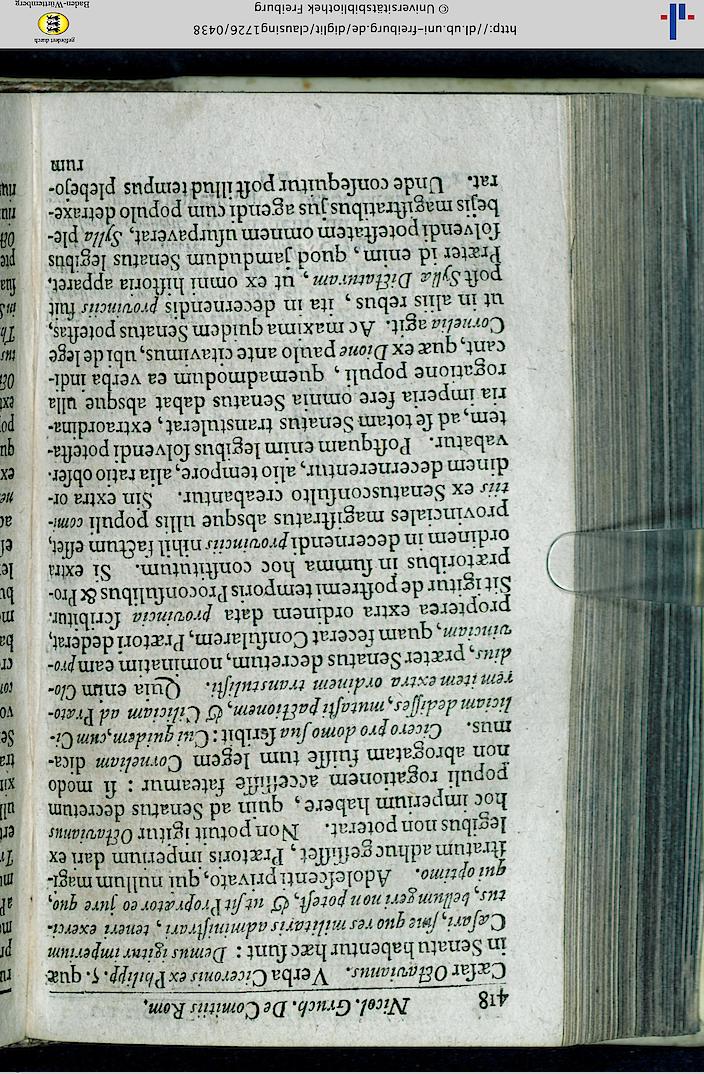 418 Nicol. Gruch. De Comitiis Rom.
Cæsar Octavianus. Verba Ciceronis ex Philipp. 5. quæ
in Senatu habentur hæc sunt : Demus igitur imperium
Cæsari, sine quo res militaris administrari, teneri exerci-
tus, bellum geri non potest, & ut sit Proprætor eo jure quo,
qui optimo. Adolescenti privato, qui nullum magi-
stratum adhuc gessisset, Prætoris imperium dari ex
legibus non poterat. Non potuit igitur Octavianus
hoc imperium habere, quin ad Senatus decretum
populi rogationem accessisse fateamur : si modo
non abrogatam fuisse tum legem Corneliam dica-
mus. Cicero pro domo sua scribit : Cui quidem, cum Ci-
liciam dedisses, mutasti pactionem, & Ciliciam ad Præto-
rem item extra ordinem transtulisti. Quia enim Clo-
dius, præter Senatus decretum, nominatim eam pro-
vinciam, quam fecerat Consularem, Prætori dederat,
propterea extra ordinem data provincia scribitur.
Sit igitur de postremi temporis Proconsulibus & Pro-
prætoribus in summa hoc constitutum. Si extra
ordinem in decernendi provinciis nihil factum esset,
provinciales magistratus absque ullis populi comi-
tiis ex Senatusconsulto creabantur. Sin extra or-
dinem decernerentur, alio tempore, alia ratio obser-
vabatur. Postquam enim legibus solvendi potesta-
tem, ad se totam Senatus transtulerat, extraordina-
ria imperia fere omnia Senatus dabat absque ulla
rogatione populi, quemadmodum ea verba indi-
cant, quæ ex Dione paulo ante citavimus, ubi de lege
Cornelia agit. Ac maxima quidem Senatus potestas,
ut in aliis rebus, ita in decernendis provinciis fuit
post Syllæ Dictaturam, ut ex omni historia apparet.
Præter id enim, quod jamdudum Senatus legibus
solvendi potestatem omnem usurpaverat, Sylla ple-
bejis magistratibus jus agendi cum populo detraxe-
rat. Unde consequitur post illud tempus plebejo-
rum
http://dl.ub.uni-freiburg.de/diglit/clausing1726/0438
© Universitätsbibliothek Freiburg
gefördert durch
Baden-Württemberg